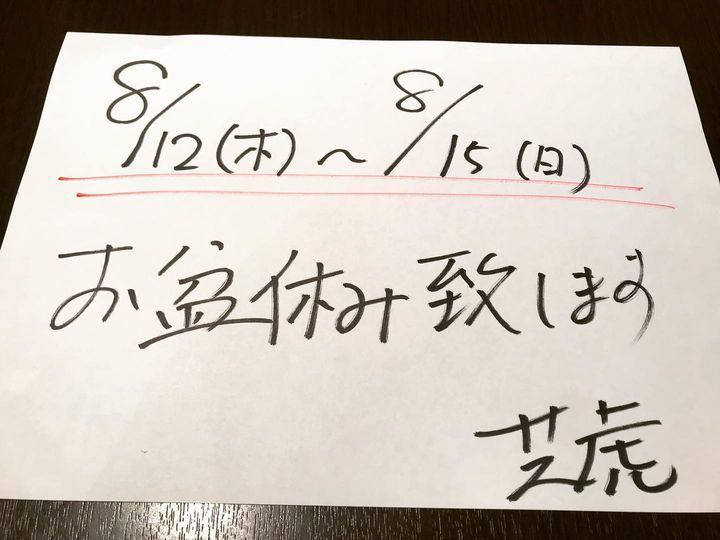 8/12(木)～8/15(日)
お盆休み致します
芝虎